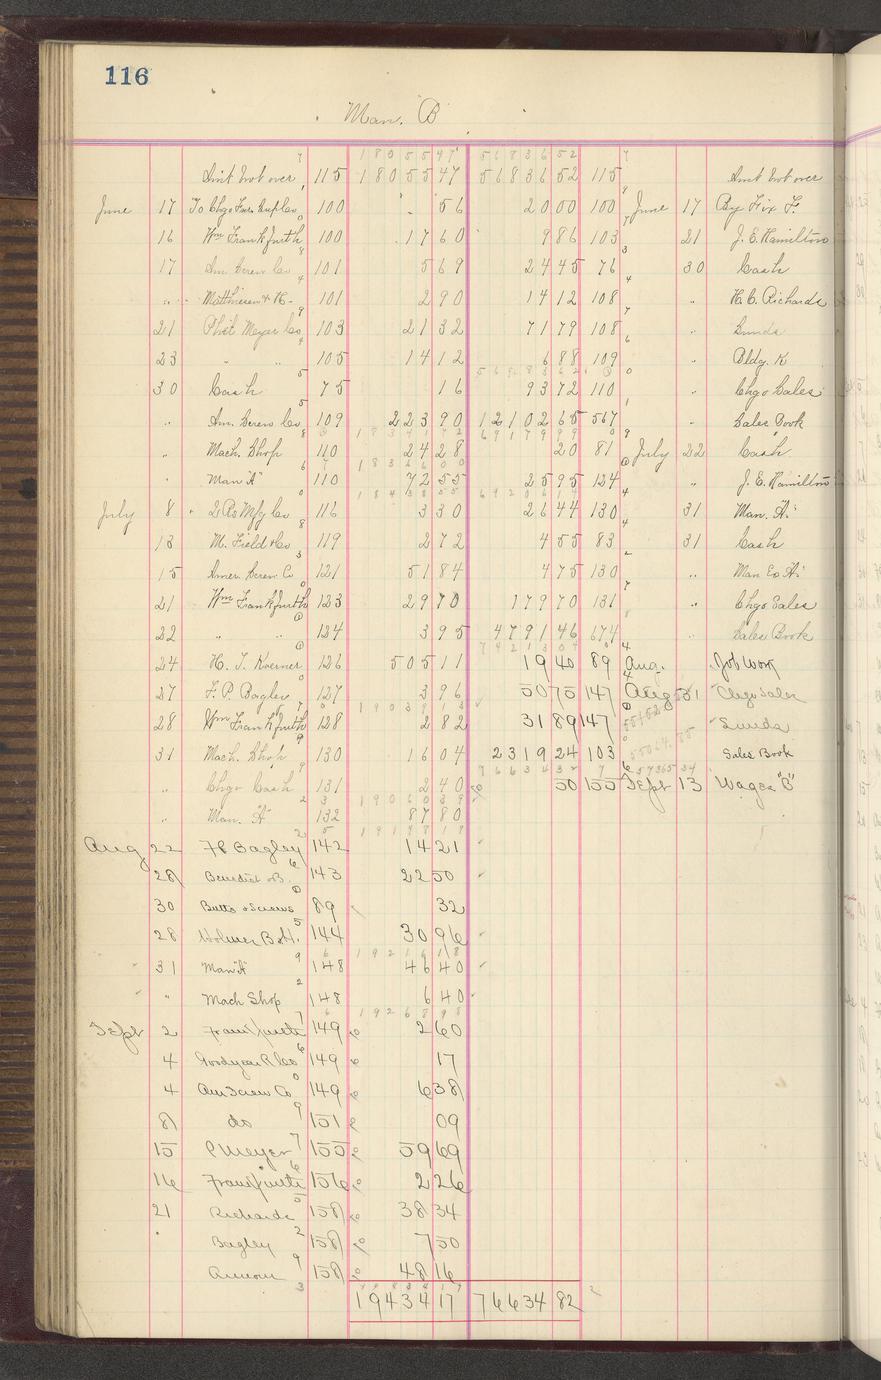 116
Man. B
Am't brot over 115 18055 47 56836 52 115 Am't brot over
June 17 To Chgo Fur. Sup Co 100 56 20 00 100 June 17 By Fix F.
16 Wm Frankfurth 100 17 60 9 86 103 21 J. E. Hamilton
17 Am Screw Co 101 5 69 24 45 76 30 Cash
" Matthiesen & H. 101 2 90 14 12 108 " H. C. Richards
21 Phil Meyer Co 103 21 32 71 79 108 " Sunds
23 " " 105 14 12 6 88 109 " Bldg. K
30 Cash 75 16 93 72 110 " Chgo Sales
" Am. Screw Co 109 223 90 12102 65 567 " Sales Book
" Mach. Shop 110 24 28 20 81 July 22 Cash
" Man "A" 110 72 55 25 95 124 " J. E. Hamilton
July 8 Mfg Co 116 3 30 26 44 130 31 Man. "A"
13 M. Field & Co 119 2 72 4 55 83 31 Cash
15 Amer. Screw Co 121 51 84 4 75 130 " Man Co "A"
21 Wm Frankfurth 123 29 70 179 70 131 " Chgo Sales
22 " " 124 3 95 4791 46 674 " Sales Book
24 H. T. Koerner 126 505 11 19 40 89 Aug. Job Work
27 F. P. Bagley 127 3 96 50 75 147 Aug 31 Chgo Sales
28 Wm Frankfurth 128 2 82 31 89 147 Sunds
31 Mach. Shop 130 16 04 2319 24 103 Sales Book
" Chgo Cash 131 2 40 50 155 Sept 13 Wages "B"
" Man. "A" 132 87 80
Aug 22 F P Bagley 142 14 21
28 Benedict & B. 143 22 50
30 Butts & Screws 89 32
28 Holmes B & H. 144 30 96
31 Man "A" 148 46 40
" Mach Shop 148 6 40
Sept 2 Frankfurth 149 2 60
4 Goodyear R Co 149 17
4 Am Screw Co 149 6 38
8 do 151 09
15 P Meyer 155 59 69
16 Frankfurth 156 2 26
21 Richards 158 38 34
" Bagley 158 7 50
Armour 158 48 16
19434 17 76634 82